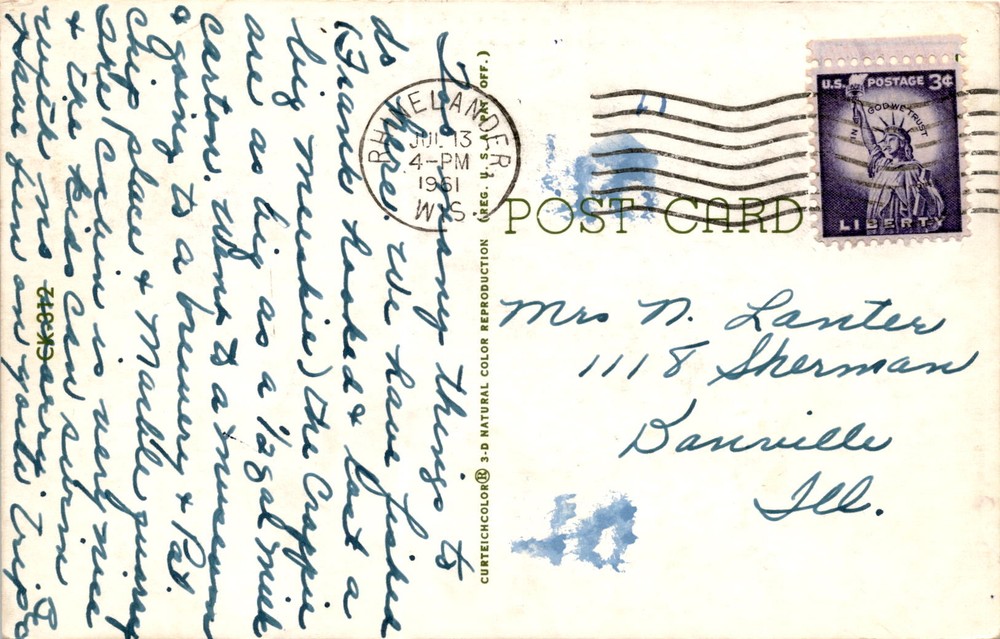 So many things to
do here. We have fished
(Frank hooked & lost a
big Muskie) the Crappie
are as big as a 1/2 gal milk
carton. Went to a museum
& going to a brewery & Pot.
Chip place & Marble quarry
The Cabin is very nice
& the kids can swim
Have fun on your trip
CK-312
CURTEICHCOLOR® 3-D NATURAL COLOR REPRODUCTION (REG. U.S.A. PAT. OFF.)
RHINELANDER,
JUL 13
4-PM
1961
WIS.
U.S. POSTAGE 3¢
IN GOD WE TRUST
LIBERTY
POST CARD
Mrs N. Lanter
1118 Sherman
Danville
Ill.